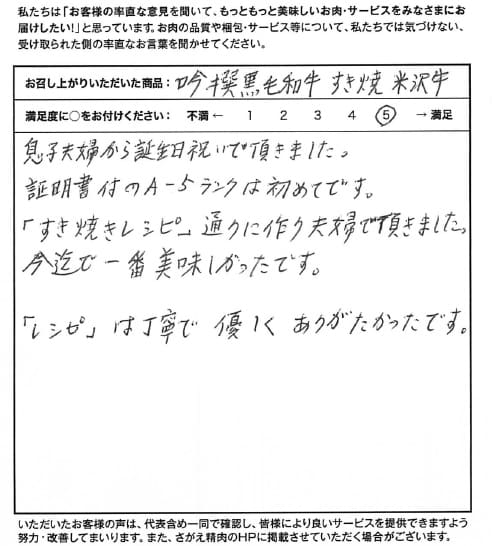 私たちは「お客様の率直な意見を聞いて、もっともっと美味しいお肉・サービスをみなさまにお
届けしたい！」と思っています。お肉の品質や梱包・サービス等について、私たちでは気づけない、
受け取られた側の率直なお言葉を聞かせてください。
お召し上がりいただいた商品： 吟撰黒毛和牛 すき焼 米沢牛
満足度に○をお付けください： 不満 ← 1 2 3 4 5 → 満足
息子夫婦から誕生日祝いで頂きました。
証明書付のA-5ランクは初めてです。
「すき焼きレシピ」通りに作り夫婦で頂きました。
今迄で一番美味しかったです。
「レシピ」は丁寧で 優しく ありがたかったです。
いただいたお客様の声は、代表含め一同で確認し、皆様により良いサービスを提供できますよう
努力・改善してまいります。また、さがえ精肉のHPに掲載させていただく場合がございます。